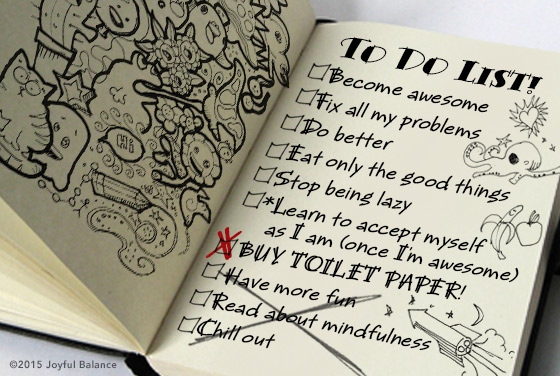 To Do List!
Become awesome
Fix all my problems
Do better
Eat only the good things
Stop being lazy
*Learn to accept myself
as I am (once I'm awesome)
BUY TOILET PAPER!
Have more fun
Read about mindfulness
Chill out
Hi
©2015 Joyful Balance